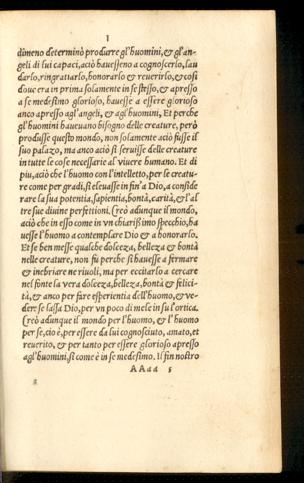 I
dimeno determinò produrre gl'huomini, & gl'an-
geli di lui capaci, aciò hauesseno a cognoscerlo, lau
darlo, ringratiarlo, honorarlo & reuerirlo, & cosi
doue era in prima solamente in se stesso, & apresso
a se medesimo glorioso, hauesse a essere glorioso
anco apresso agl'angeli, & agl'huomini, Et perche
gl'huomini haueuano bisogno delle creature, però
produsse questo mondo, non solamente aciò fusse il
suo palazo, ma anco aciò si seruisse delle creature
in tutte le cose necessarie al viuere humano. Et di
piu, aciò che l'huomo con l'intelletto, per le creatu-
re come per gradi, si eleuasse in fin'a Dio, a conside
rare la sua potentia, sapientia, bontà, carità, & l'al
tre sue diuine perfettioni. Creò adunque il mondo,
aciò che in esso come in vn chiarissimo specchio, ha
uesse l'huomo a contemplare Dio & a honorarlo.
Et se ben messe qualche dolceza, belleza & bontà
nelle creature, non fu perche si hauesse a firmare
& inebriare ne riuoli, ma per eccitarlo a cercare
nel fonte la vera dolceza, belleza, bontà & felici-
tà, & anco per fare esperientia dell'huomo, & ve-
der: se lassa Dio, per vn poco di mele in su l'ortica.
Creò adunque il mondo per l'huomo, & l'huomo
per se, cio è, per essere da lui cognosciuto, amato, et
reuerito, & per tanto per essere glorioso apresso
agl'huomini, si come è in se medesimo. Il fin nostro
AAaa 5